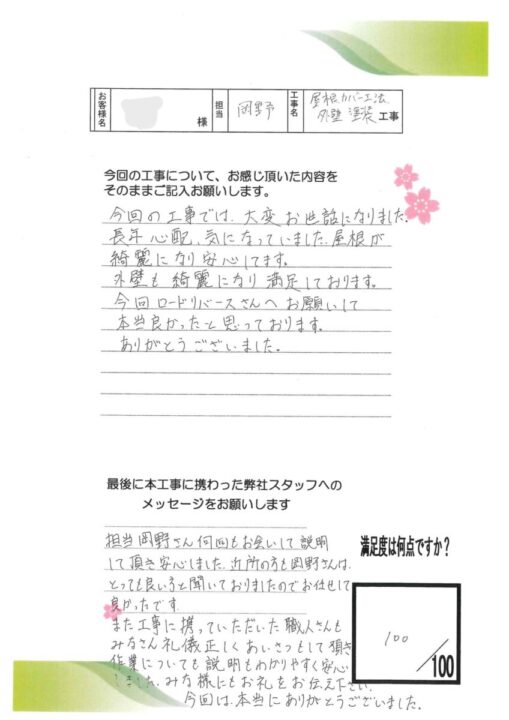 お客様名 様 担当 岡野 工事名 屋根カバー工法
外壁塗装 工事
今回の工事について、お感じ頂いた内容を
そのままご記入お願いします。
今回の工事では、大変お世話になりました。
長年心配、気になっていました、屋根が
綺麗になり安心してます。
外壁も綺麗になり満足しております。
今回ロードリバースさんへお願いして
本当良かったと思っております。
ありがとうございました。
最後に本工事に携わった弊社スタッフへの
メッセージをお願いします
担当岡野さん何回もお会いして説明
して頂き安心しました、近所の方も岡野さんは、
とっても良い方と聞いておりましたのでお任せして
良かったです
また工事に携っていただいた職人さんも
みなさん礼儀正しくあいさつもして頂き
作業についても説明もわかりやすく安心
しました、みな様にもお礼をお伝え下さい。
今回は、本当にありがとうございました。
満足度は何点ですか？
100
/100